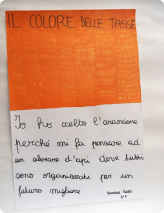 IL COLORE DELLE TASSE
Io ho scelto l'arancione
perché mi fa pensare ad
un alveare d'api dove tutti
sono organizzati per un
futuro migliore